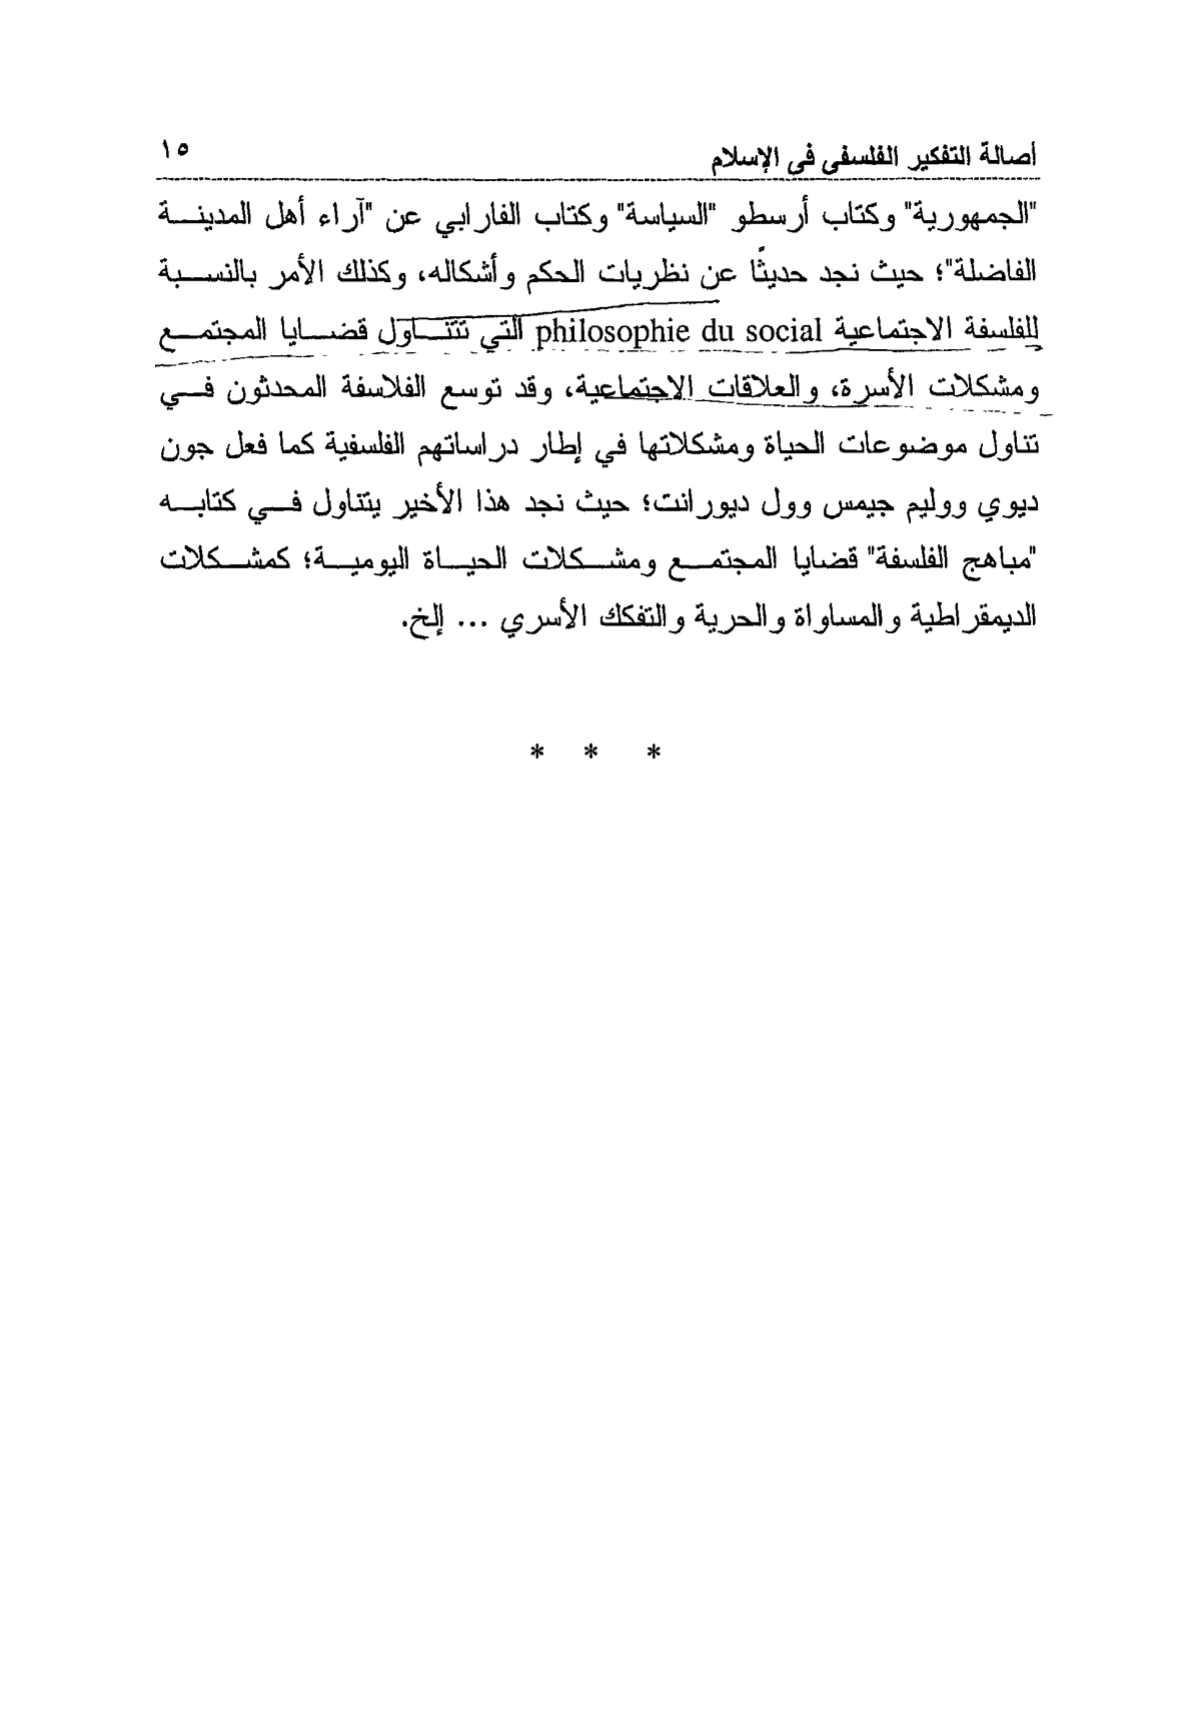 أصالة التفكير الفلسفى فى الإسلام ١٥
"الجمهورية" وكتاب أرسطو "السياسة" وكتاب الفارابي عن "آراء أهل المدينــة
الفاضلة"؛ حيث نجد حديثًا عن نظريات الحكم وأشكاله، وكذلك الأمر بالنســبة
للفلسفة الاجتماعية philosophie du social التي تتنــاول قضــايا المجتمــع
ومشكلات الأسرة، والعلاقات الاجتماعية، وقد توسع الفلاسفة المحدثون فــي
تناول موضوعات الحياة ومشكلاتها في إطار دراساتهم الفلسفية كما فعل جون
ديوي ووليم جيمس وول ديورانت؛ حيث نجد هذا الأخير يتناول فــي كتابــه
"مباهج الفلسفة" قضايا المجتمــع ومشــكلات الحيــاة اليوميــة؛ كمشــكلات
الديمقراطية والمساواة والحرية والتفكك الأسري ... إلخ.
* * *